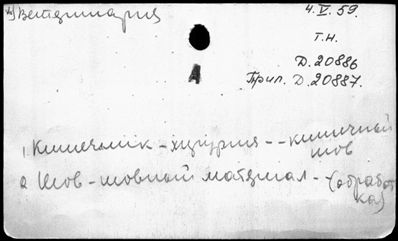 Ветеринария
4.V.59.
Т.Н.
Д.20886
Прил. Д.20887.
А
1 Кишечник - хирургия -- кишечный
шов
2 Шов - шовный материал - (обработ
ка)